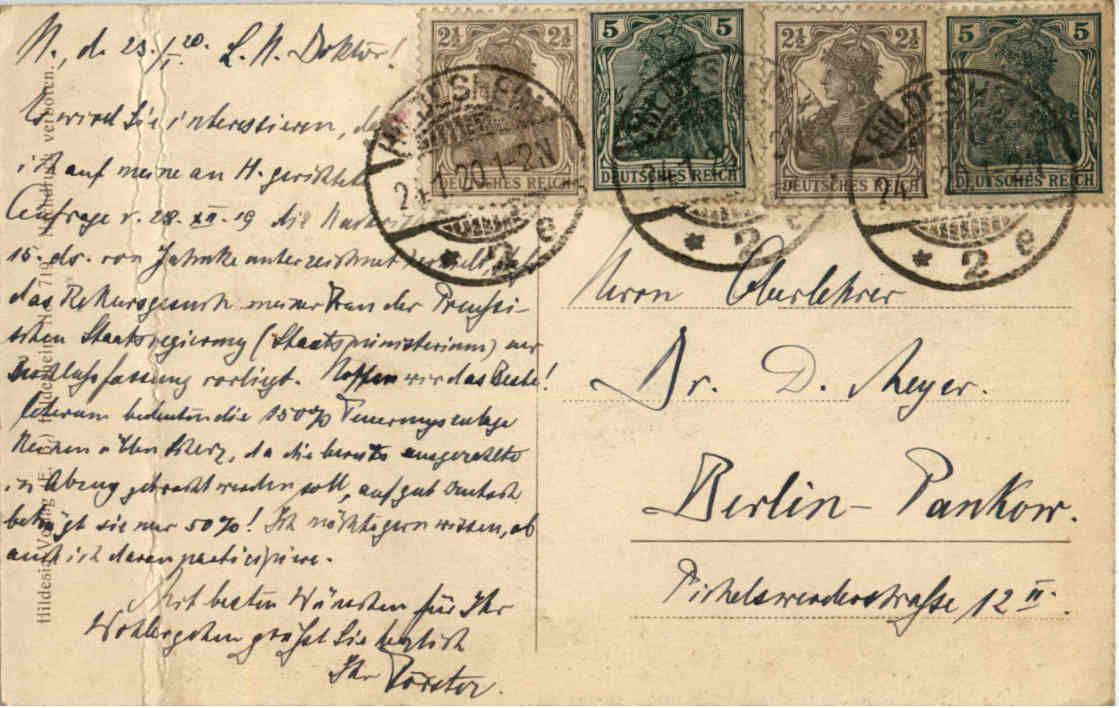 H., d. 23./I.20. L. H. Doktor!
Es wird Sie interessieren,
ich auf meine an H. gerichtet
Anfrage v. 28. XII. 19 die
15. ds. von Jahnke unterzeichnet
das Rekursgesuch meiner Frau der Preußi-
schen Staatsregierung (Staatsministerium) zur
Beschlußfassung vorliegt. Hoffen wir das Beste!
bedeuten die 150% Teuerungszulage
, da die bereits ausgezahlte
in Abzug gebracht werden soll, auf gut Deutsch
beträgt sie nur 50%! Ich möchte gern wissen, ob
auch ich daran participiere.
Mit besten Wünschen für Ihr
Wohlergehen grüßt Sie herzlich
Ihr Förster.
2½ 2½
DEUTSCHES REICH
5 5
DEUTSCHES REICH
2½ 2½
DEUTSCHES REICH
5 5
DEUTSCHES REICH
HILDESHEIM
24.1.20.1-2N
* 2 e
HILDESHEIM
24.1.20.1-2N
* 2 e
HILDESHEIM
24.1.20.1-2N
* 2 e
Herrn Oberlehrer
Dr. D. Meyer.
Berlin-Pankow.
Pichelswerderstraße 12 II.
Hildesia-Verlag Hildesheim No. 719 verboten.